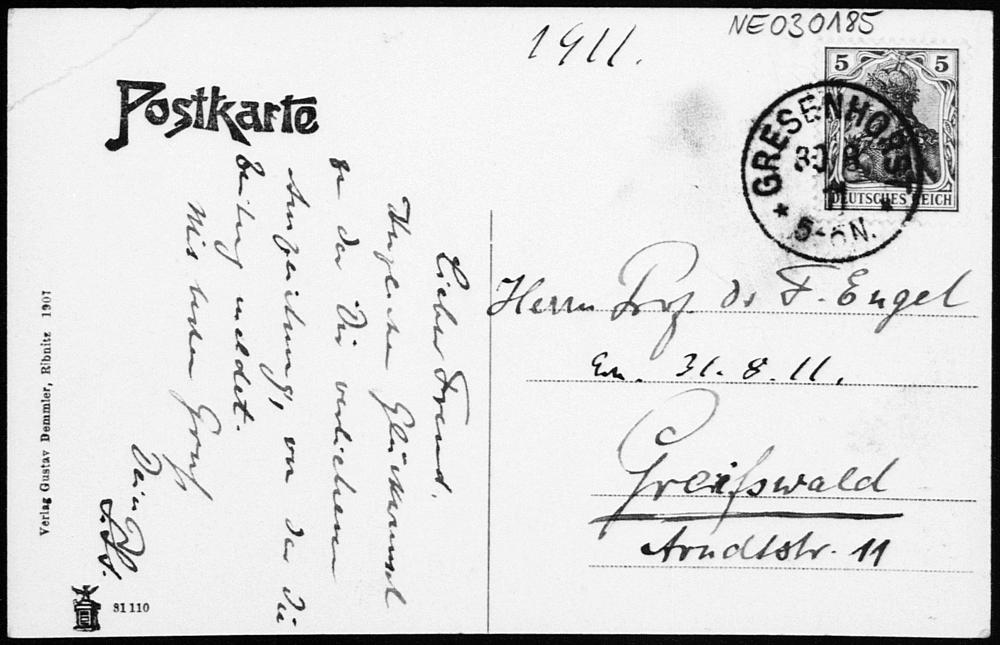 NE030185
1911.
Postkarte
5 5
DEUTSCHES REICH
GRESENHORST
30 8
11
5-6N.
Lieber Freund,
Herzlichen Glückwunsch
zu der Dir verliehenen
Auszeichnung, von der die
Zeitung meldet.
Mit bestem Gruß
Dein
Herrn Prof. Dr F. Engel
31.8.11.
Greifswald
Arndtstr. 11
Verlag Gustav Demmler, Ribnitz 1907
81110